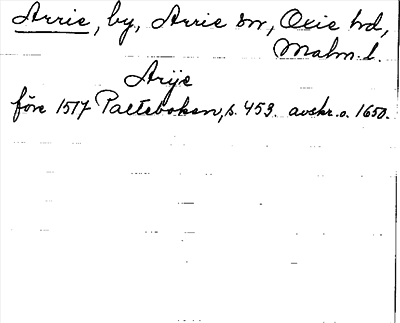 Arrie, by, Arrie sn, Oxie hd,
Malm. l.
Arije
före 1517 Palteboken, s. 453. avskr. o. 1650.